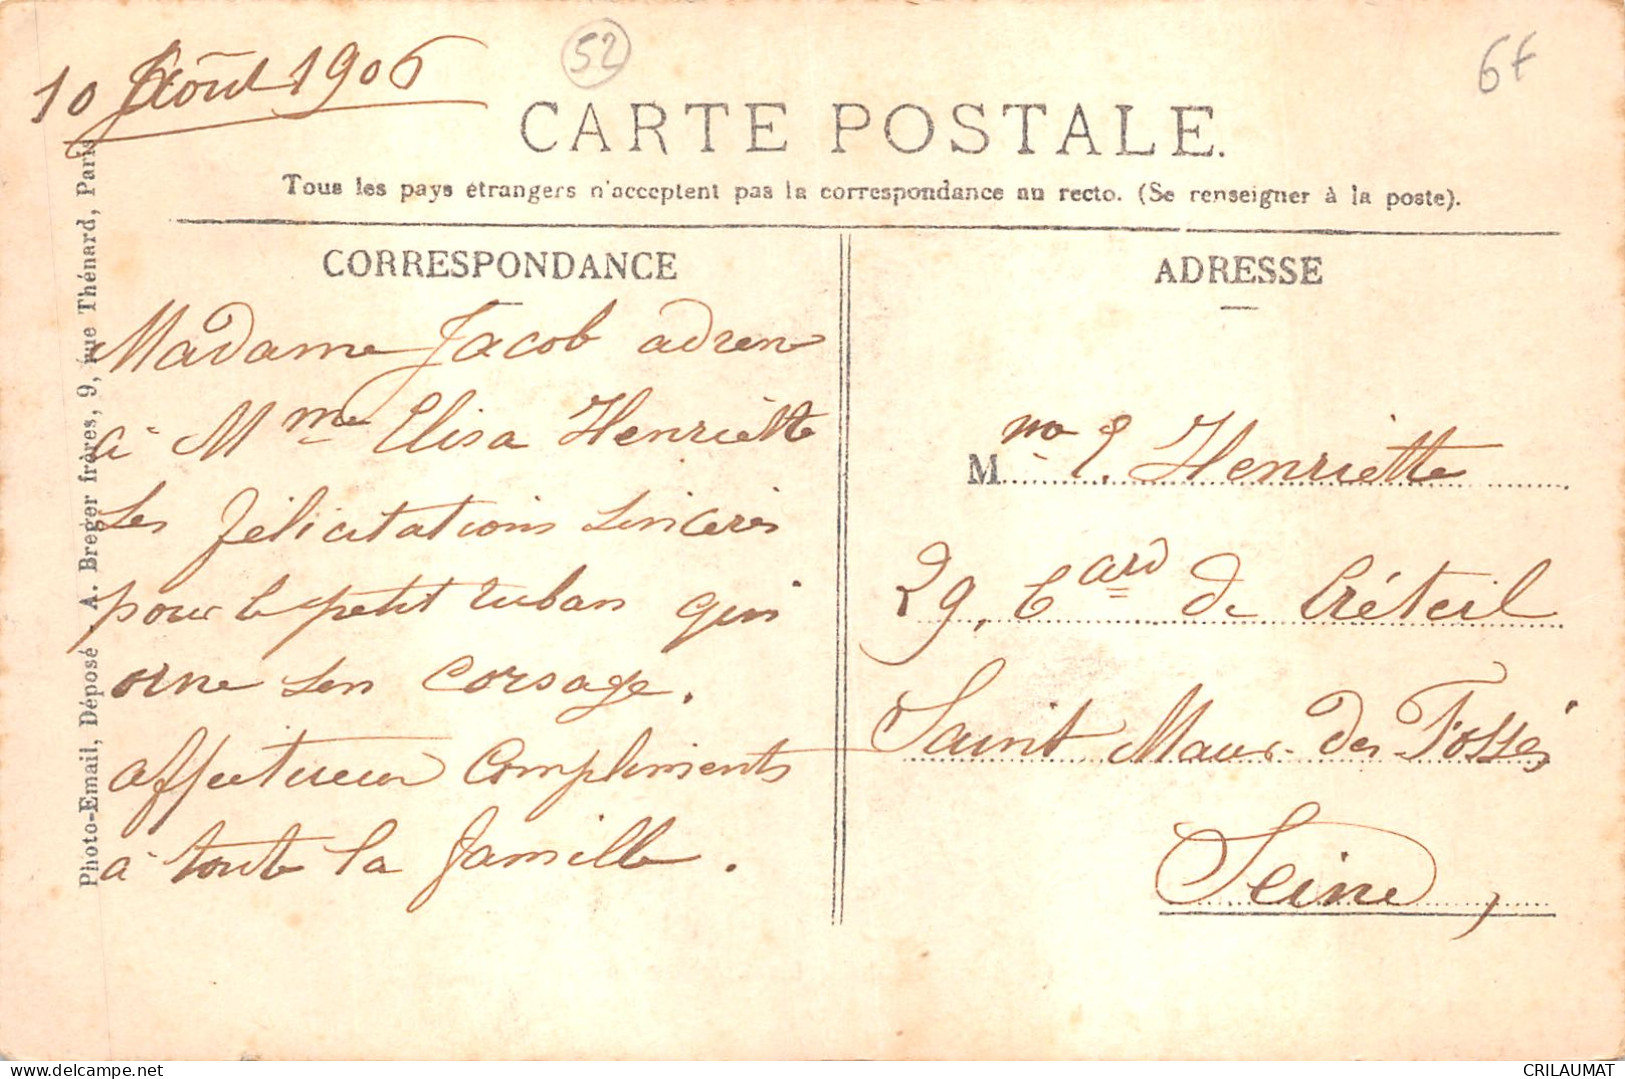 10 Août 1906
52
6f
CARTE POSTALE.
Tous les pays étrangers n'acceptent pas la correspondance au recto. (Se renseigner à la poste).
CORRESPONDANCE
Madame Jacob adresse
à Mme Elisa Henriette
ses félicitations sincères
pour le petit ruban qui
orne son corsage.
affectueux compliments
à toute la famille.
ADRESSE
Mme E. Henriette
29, Bard de Créteil
Saint Maur-des-Fossés
Seine,
Photo-Email, Déposé. A. Breger frères, 9, rue Thénard, Paris
CRILAUMAT